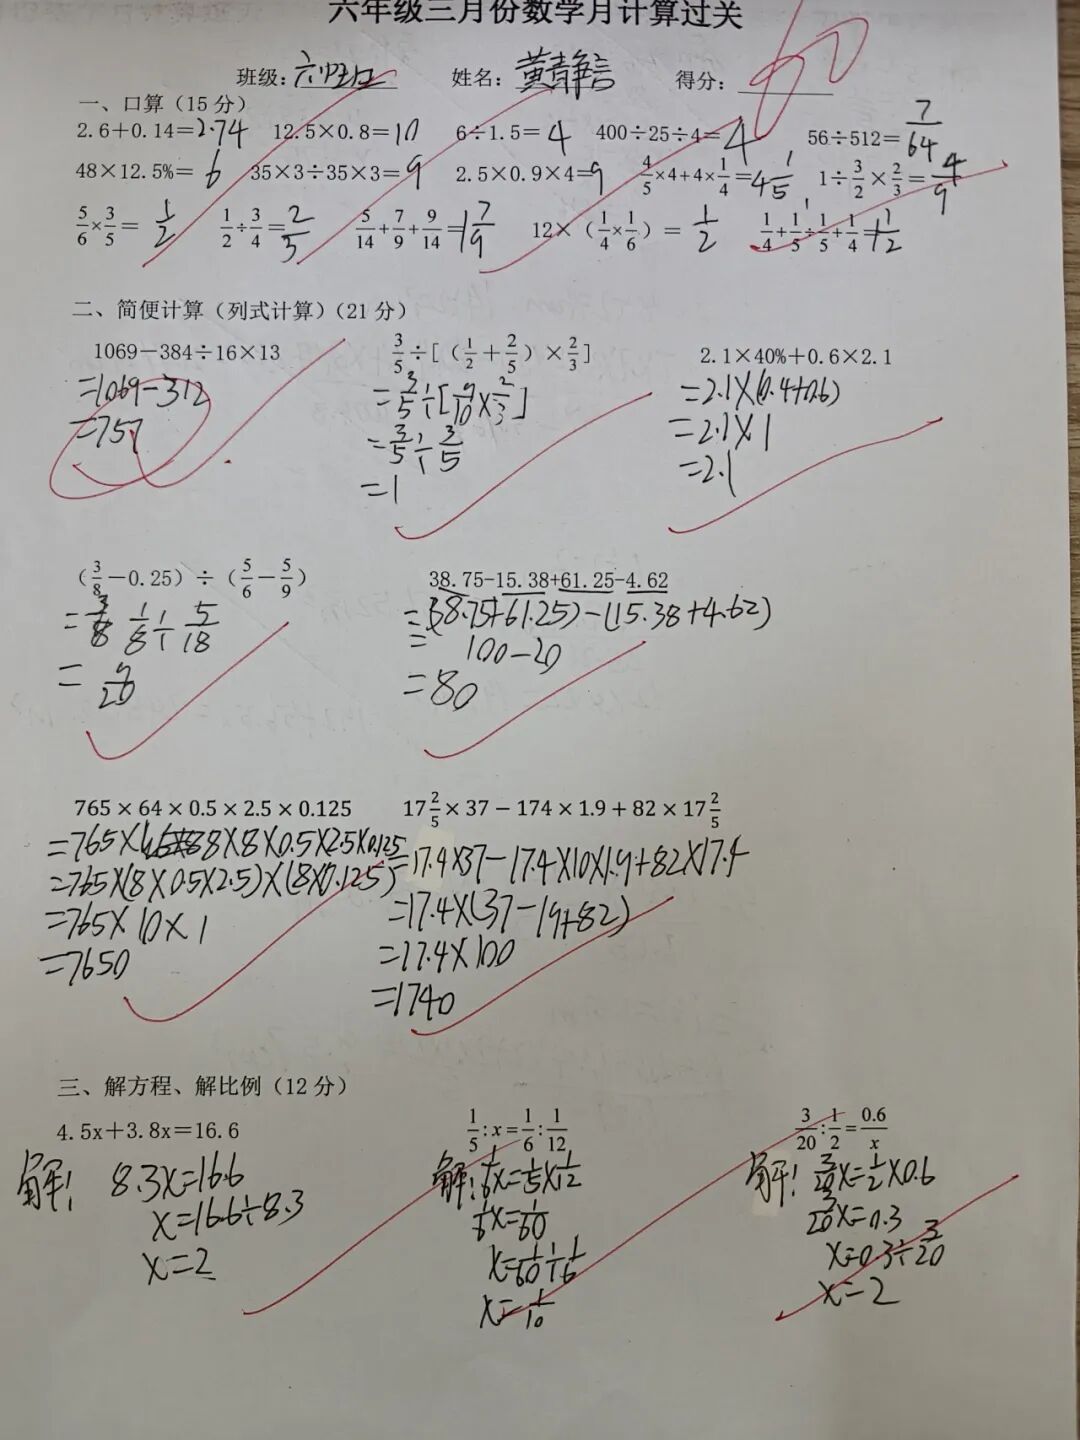 六年级三月份数学月计算过关
班级: 六(四) 姓名: 黄静言 得分: 60
一、口算（15分）
2.6+0.14=2.74 12.5×0.8=10 6÷1.5=4 400÷25÷4=4 56÷512=7/64
48×12.5%=6 35×3÷35×3=9 2.5×0.9×4=9 4/5×4+4×1/4=4 1/5 1÷3/2×2/3=4/9
5/6×3/5=1/2 1/2÷3/4=2/3 5/14+7/9+9/14=1 7/9 12×（1/4×1/6）=1/2 1/4+1/5÷1/5+1/4=1 1/2
二、简便计算（列式计算）（21分）
1069－384÷16×13 3/5÷[（1/2+2/5）×2/3] 2.1×40%+0.6×2.1
=1069-312 =3/5÷[9/10×2/3] =2.1×(0.4+0.6)
=757 =3/5÷3/5 =2.1×1
=1 =2.1
（3/8－0.25）÷（5/6－5/9） 38.75-15.38+61.25-4.62
=1/8÷5/18 =(38.75+61.25)-(15.38+4.62)
=9/20 =100-20
=80
765×64×0.5×2.5×0.125 17 2/5×37－174×1.9+82×17 2/5
=765×8×8×0.5×2.5×0.125 =17.4×37-17.4×10×1.9+82×17.4
=765×(8×0.5×2.5)×(8×0.125) =17.4×(37-19+82)
=765×10×1 =17.4×100
=7650 =1740
三、解方程、解比例（12分）
4.5x+3.8x=16.6 1/5:x=1/6:1/12 3/20:1/2=0.6/x
解: 8.3x=16.6 解: 1/6x=1/5×1/12 解: 3/20x=1/2×0.6
x=16.6÷8.3 1/6x=1/60 3/20x=0.3
x=2 x=1/60÷1/6 x=0.3÷3/20
x=1/10 x=2